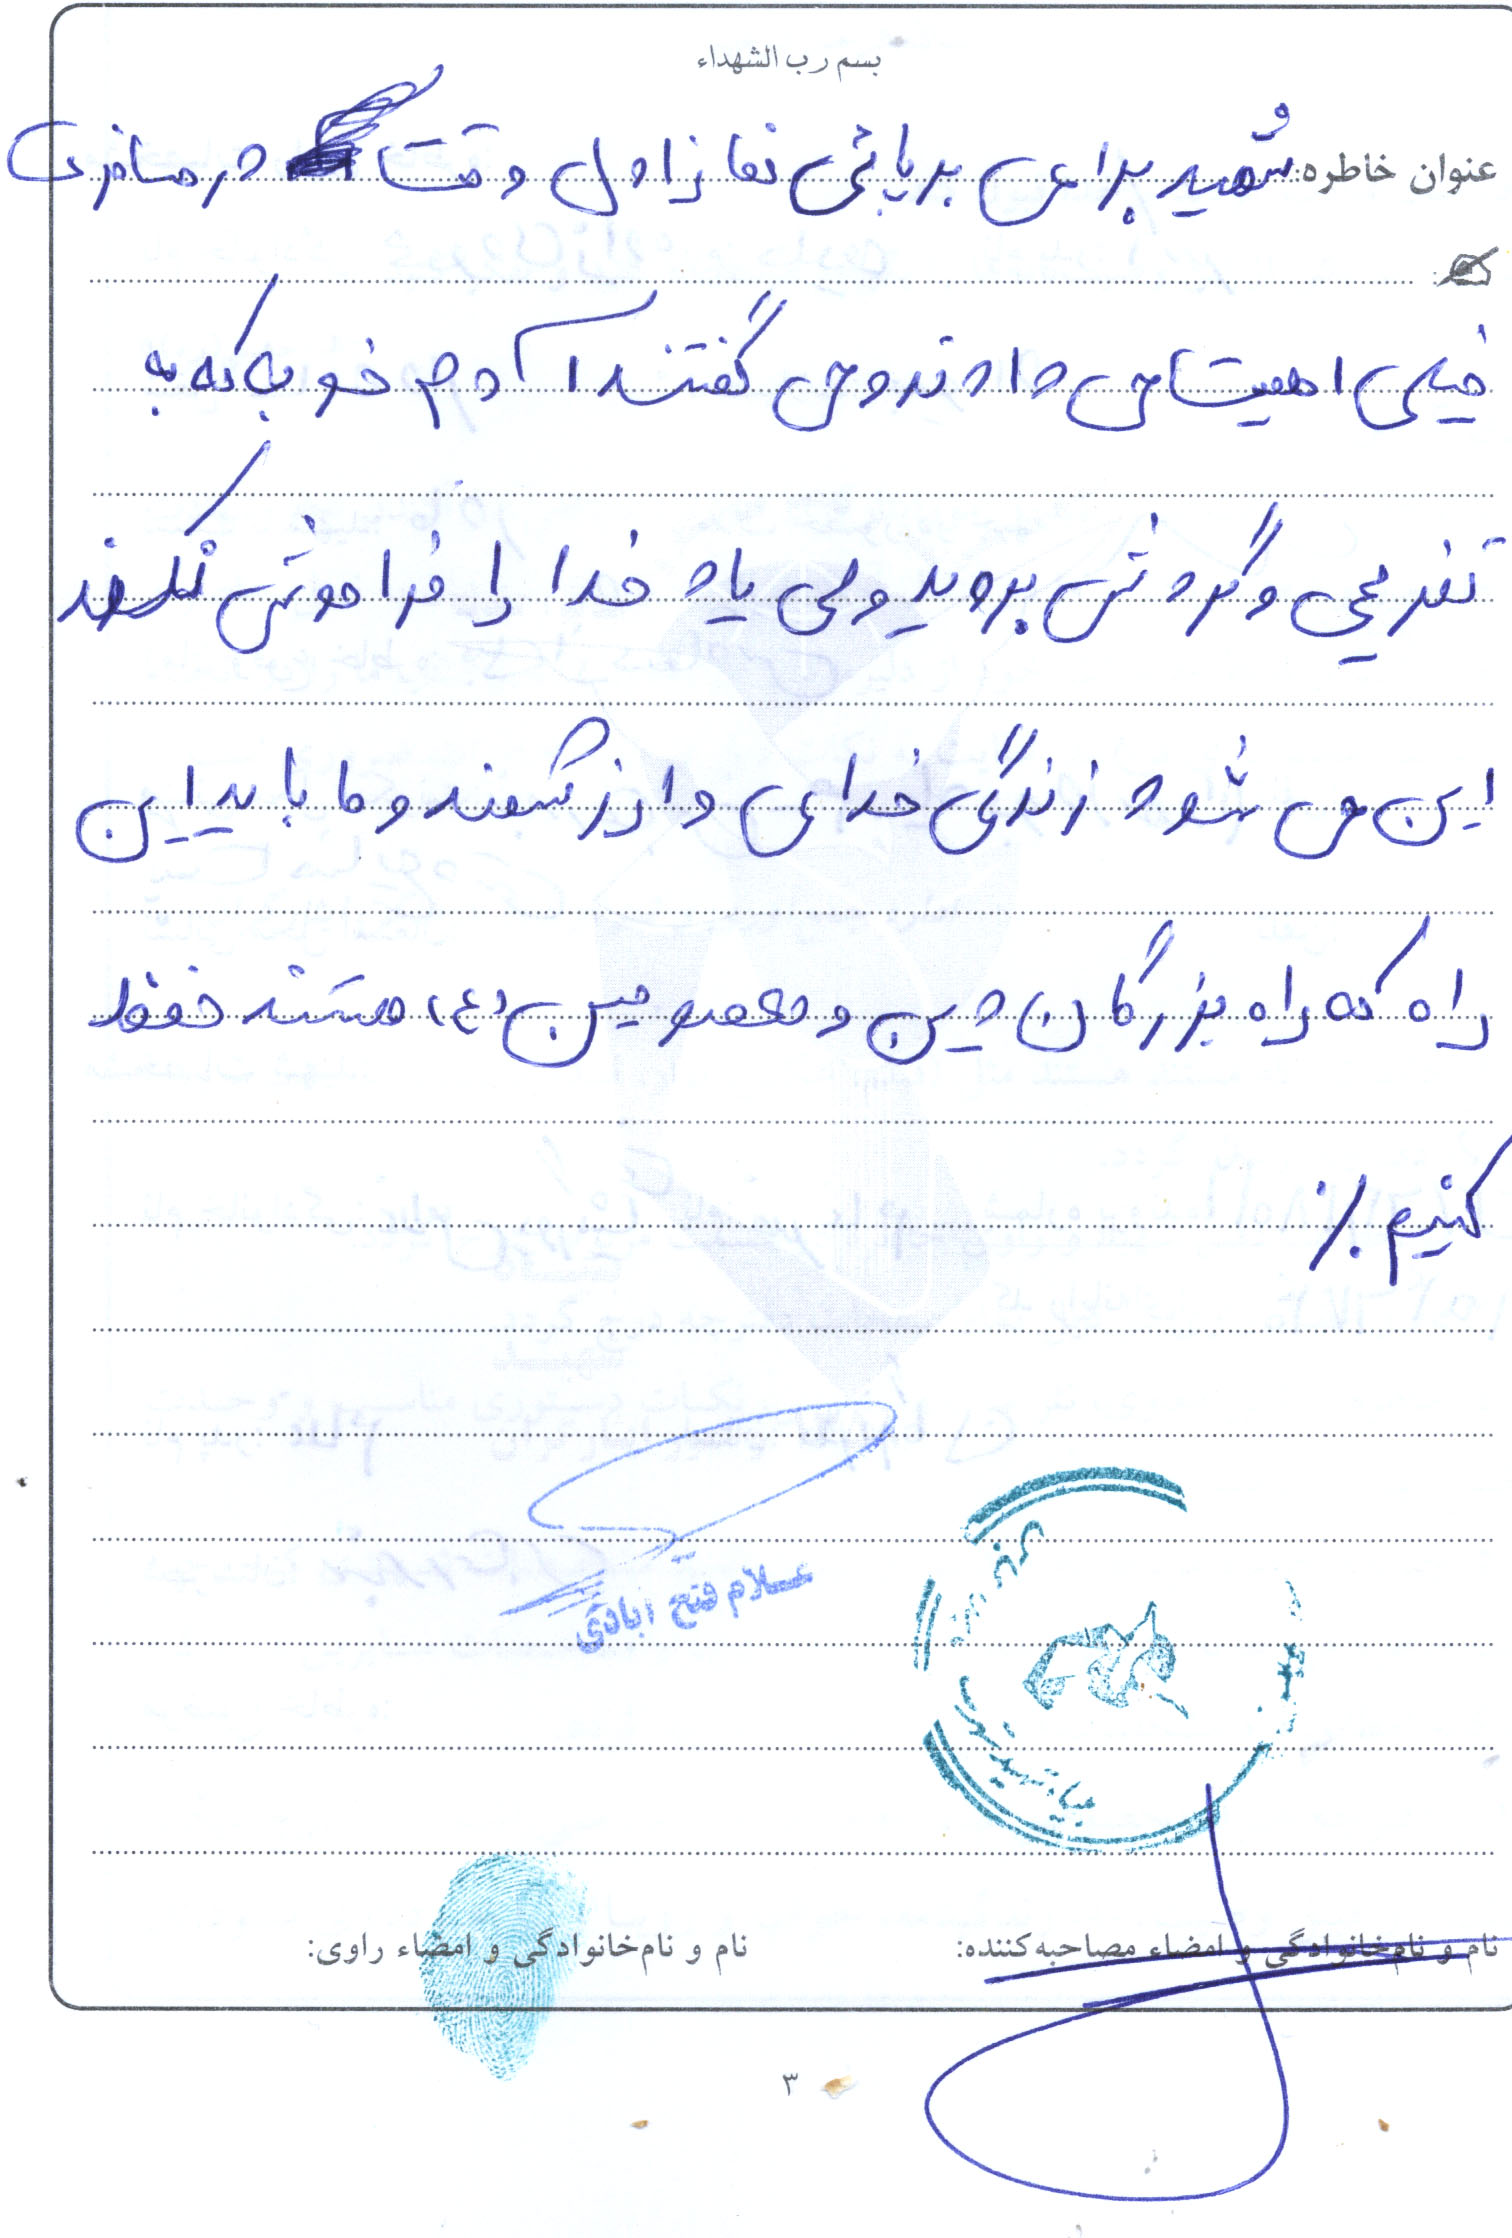 بسم رب الشهداء
عنوان خاطره: شهید برای برپائی نماز اول وقت در مسافرت
خیلی اهمیت می دادند و می گفتند آدم خوبه که به
تفریحی و گردش بروید ولی یاد خدا را فراموش نکنند
این می شود زندگی خدای و ارزشمند و ما باید این
راه که راه بزرگان دین و معصومین (ع) هستند حفظ
کنیم ./
غلام فتح آبادی
نام و نام‌خانوادگی و امضاء مصاحبه‌کننده:
نام و نام‌خانوادگی و امضاء راوی:
۳